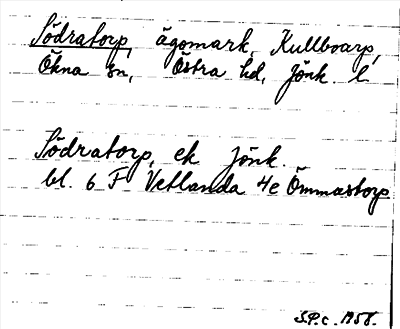 Södratorp, ägomark, Kullboarp,
Ökna sn, Östra hd, Jönk l
Södratorp, ek Jönk.
bl. 6 F Vetlanda 4e Ömmastorp
S.P.c. 1956.